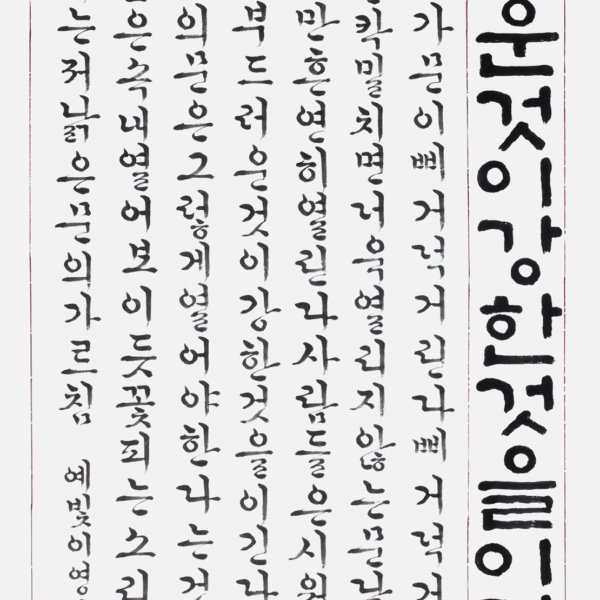 운것이강한것을이
가문이삐거덕거린다삐거덕거
칵밀치면더욱열리지않는문
만흔연히열린다사람들은시원
부드러운것이강한것을이긴다
의문은그렇게열어야한다는것
은속내열어보이듯꽃피는소리
는저낡은문의가르침 예빛이영